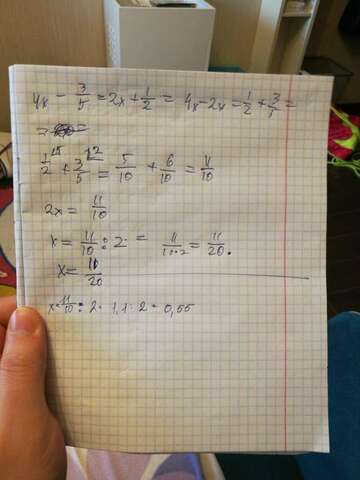 4x - 3/5 = 2x + 1/2 = 4x - 2x = 1/2 + 3/5 =
=
1/2 + 3/5 = 5/10 + 6/10 = 11/10
2x = 11/10
x = 11/10 : 2 = 11/10·2 = 11/20.
x = 11/20
x = 11/10 : 2 = 1,1 : 2 = 0,55